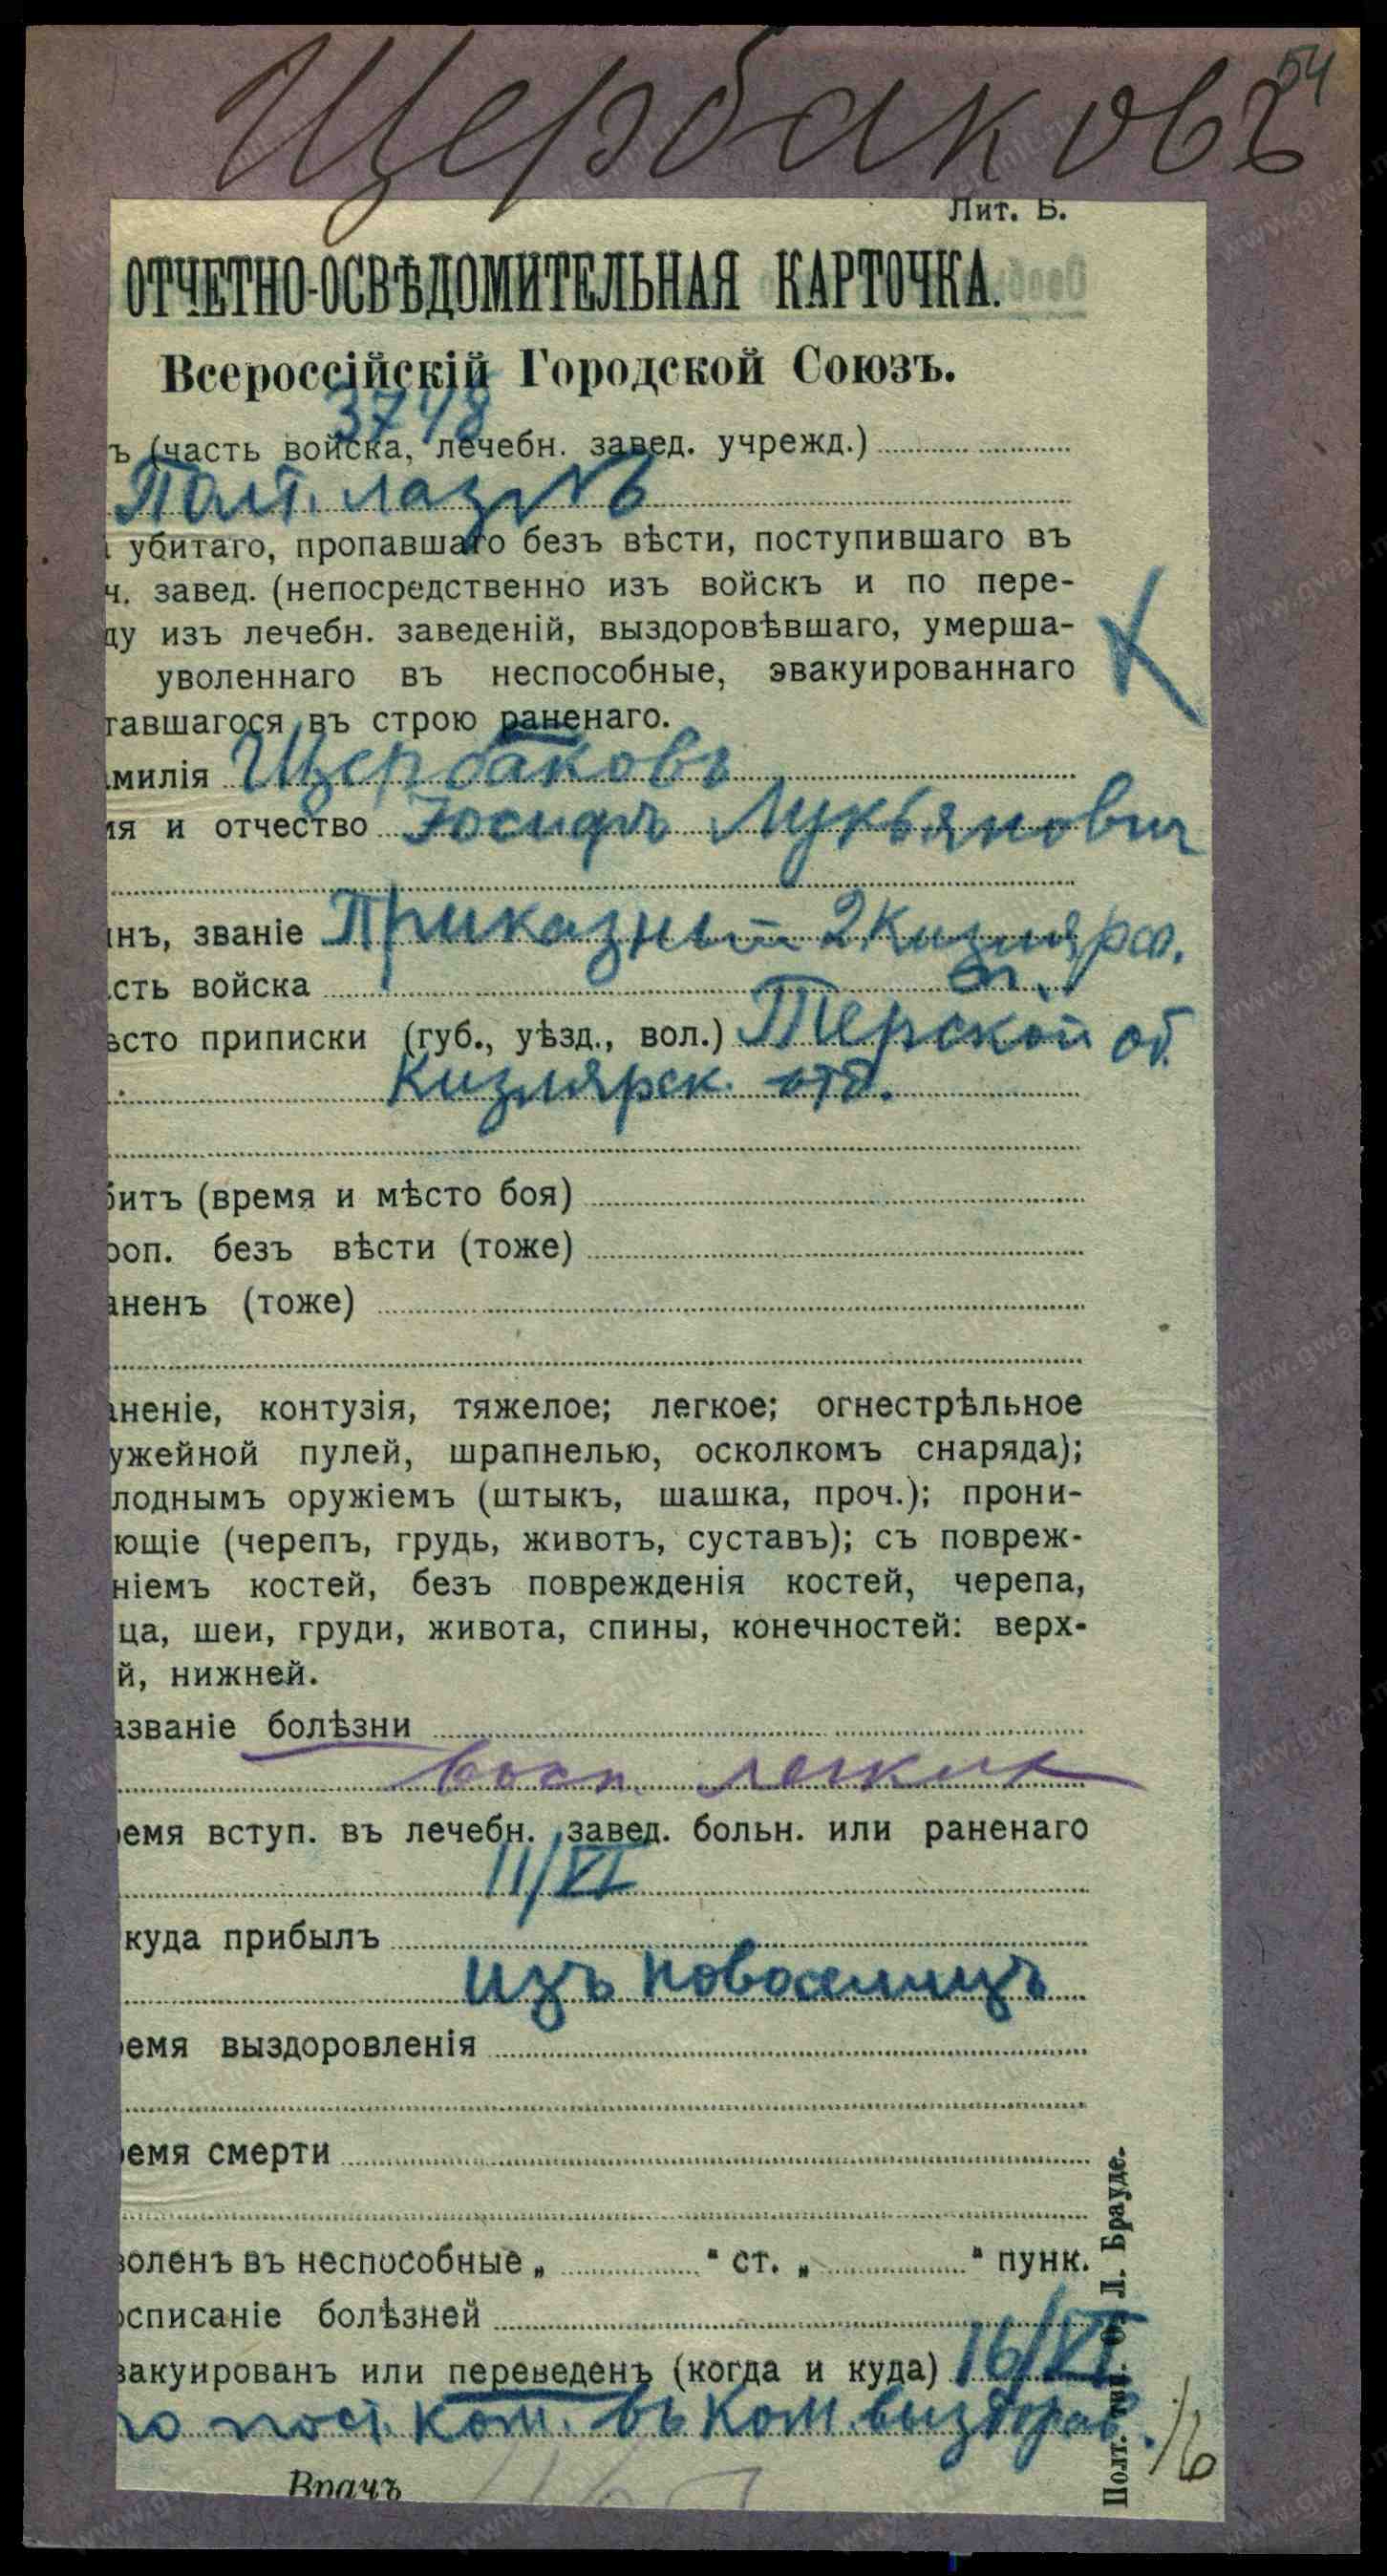 54
Щербаковъ
Лит. Б.
ОТЧЕТНО-ОСВѢДОМИТЕЛЬНАЯ КАРТОЧКА.
Всероссійскій Городской Союзъ.
3748
ъ (часть войска, лечебн. завед. учрежд.)
Полт. лаз.
убитаго, пропавшаго безъ вѣсти, поступившаго въ
ч. завед. (непосредственно изъ войскъ и по пере-
ду изъ лечебн. заведеній, выздоровѣвшаго, умерша-
уволеннаго въ неспособные, эвакуированнаго
тавшагося въ строю раненаго.
милія Щербаковъ
ія и отчество Іосифъ Лукьянович
инъ, званіе Приказный 2 Кизлярск.
сть войска п.
ѣсто приписки (губ., уѣзд., вол.) Терской об.
Кизлярск. отд.
битъ (время и мѣсто боя)
роп. безъ вѣсти (тоже)
аненъ (тоже)
аненіе, контузія, тяжелое; легкое; огнестрѣльное
ужейной пулей, шрапнелью, осколкомъ снаряда);
лоднымъ оружіемъ (штыкъ, шашка, проч.); прони-
ющіе (черепъ, грудь, животъ, суставъ); съ повреж-
ніемъ костей, безъ поврежденія костей, черепа,
ца, шеи, груди, живота, спины, конечностей: верх-
й, нижней.
азваніе болѣзни
восп. легких
ремя вступ. въ лечебн. завед. больн. или раненаго
11/VI
куда прибылъ
изъ Новоселицъ
ремя выздоровленія
ремя смерти
воленъ въ неспособные „ " ст. „ " пунк.
осписаніе болѣзней
вакуированъ или переведенъ (когда и куда) 16/VI
по пост. Ком. въ Ком. выздорав.
Врачъ
Полт. тип. Л. Брауде.